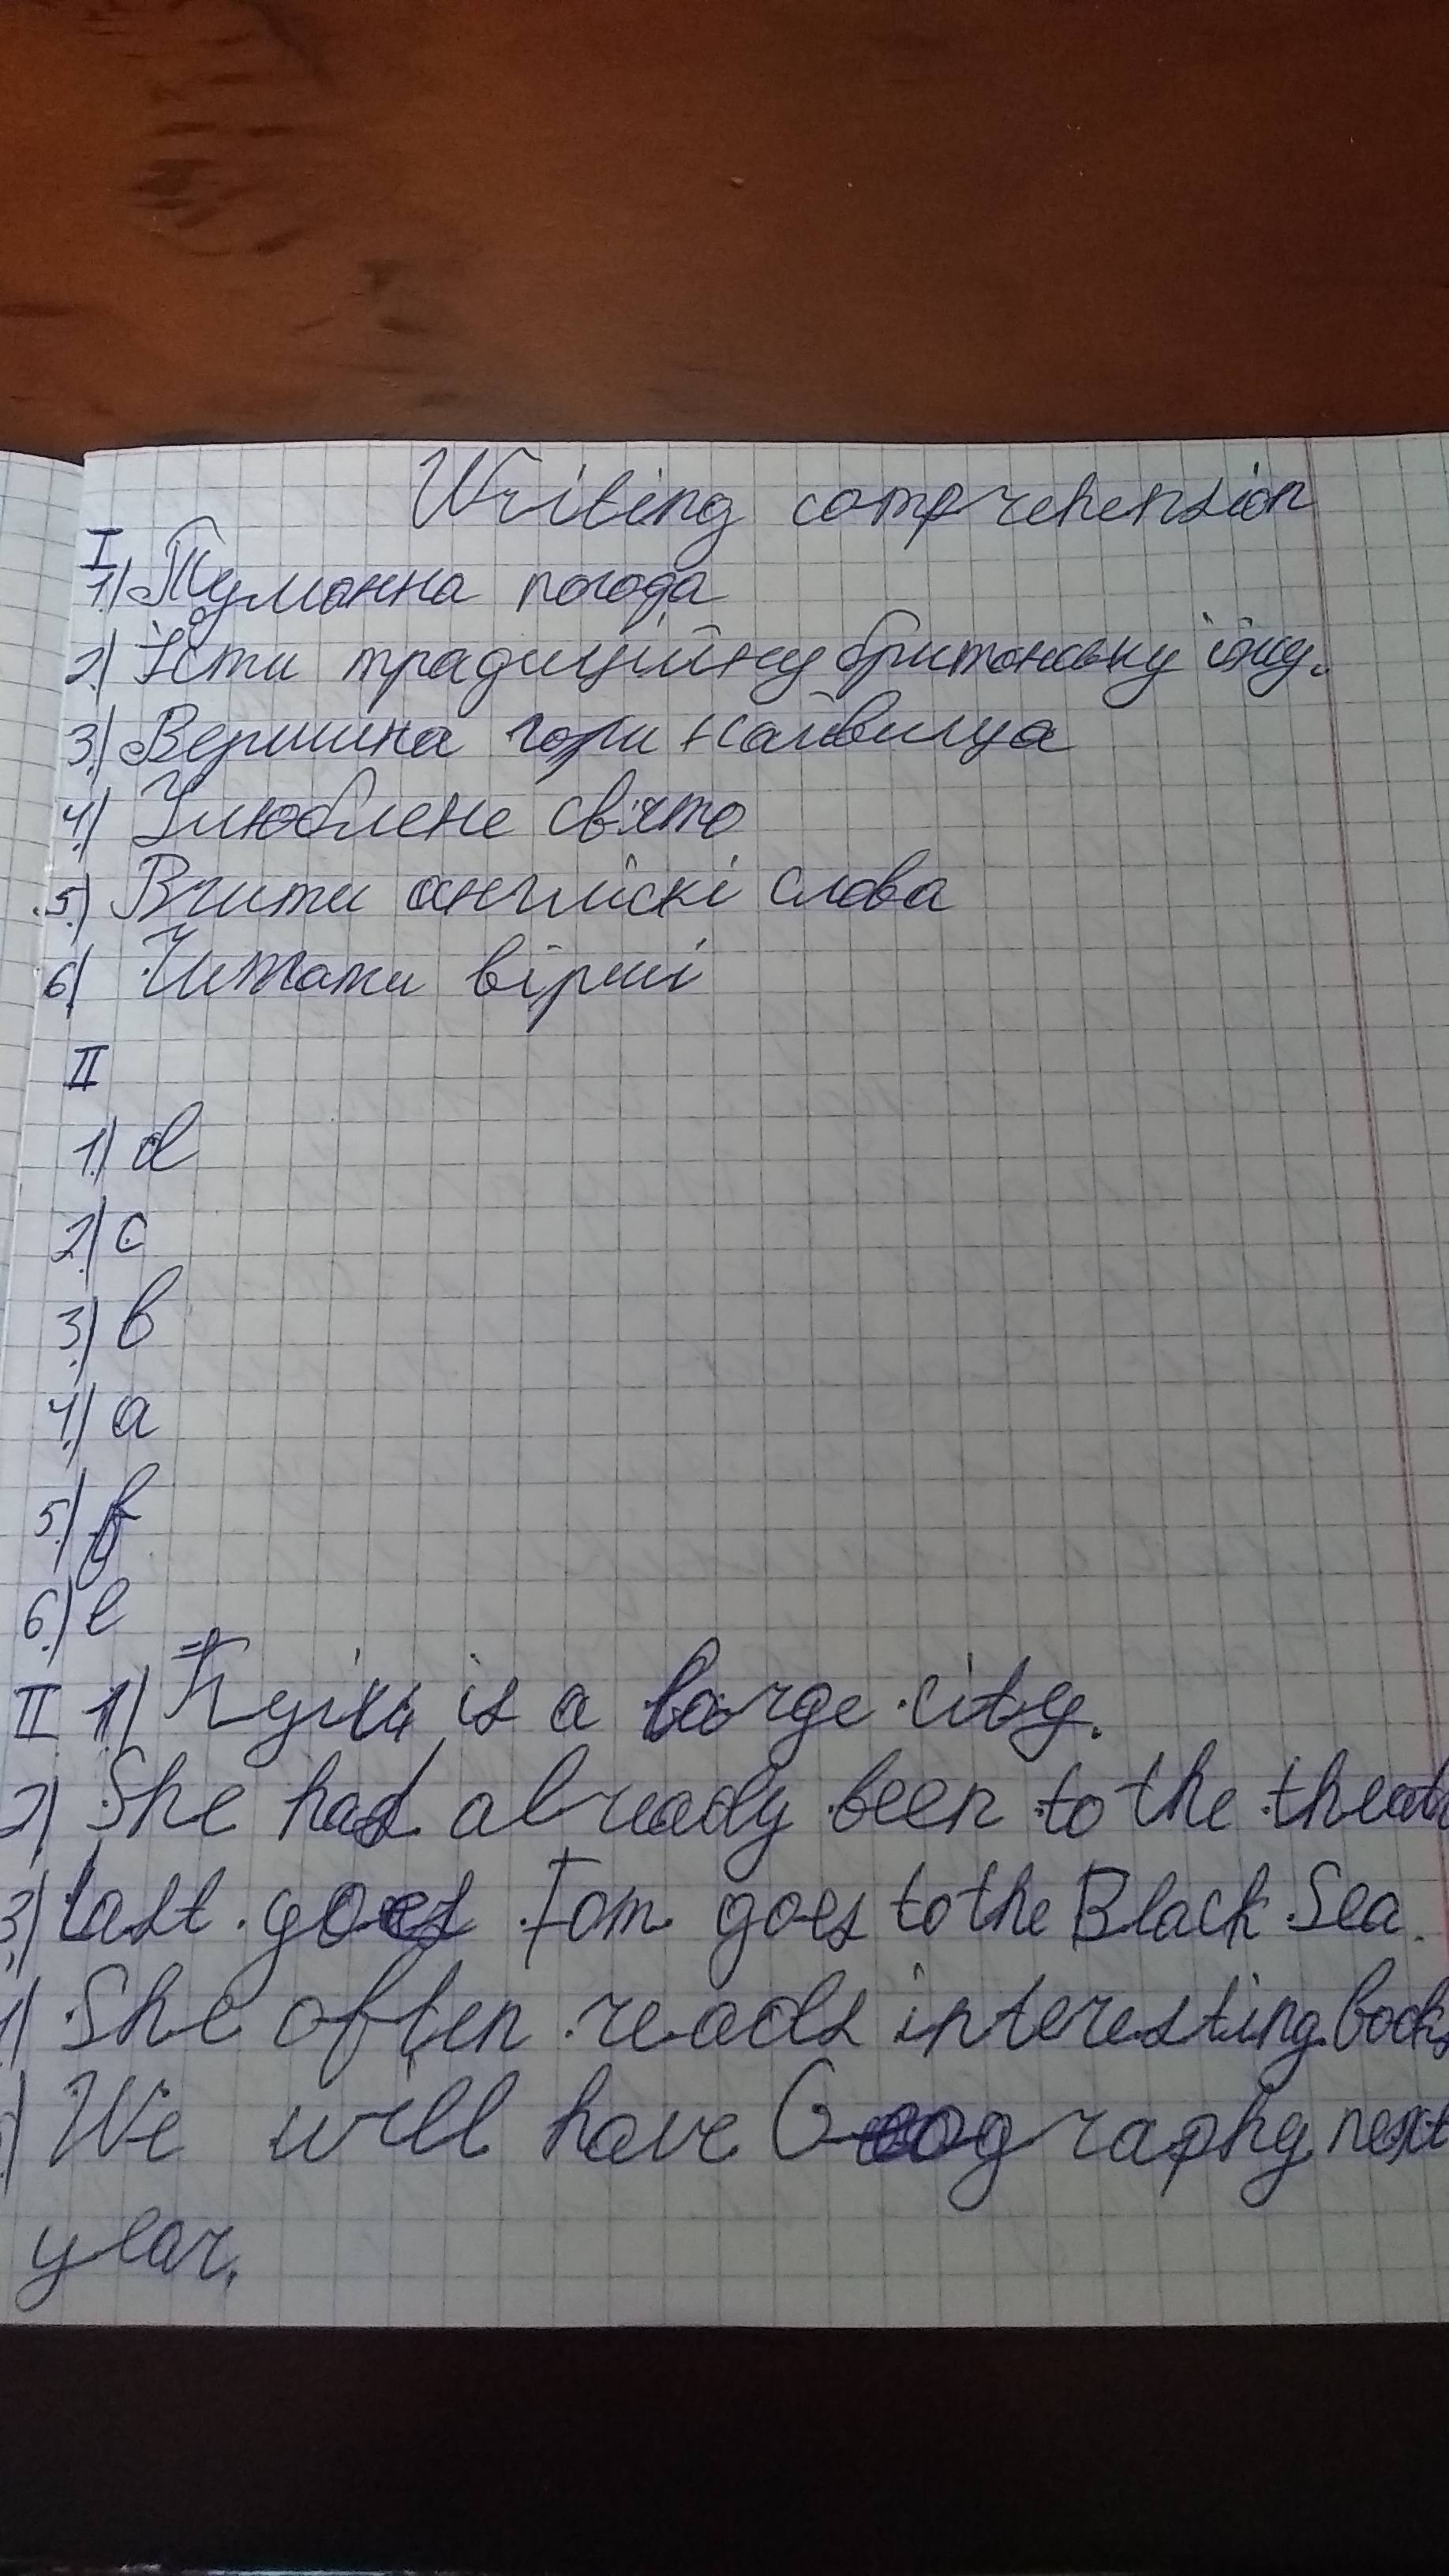 Writing comprehension
I
1) Туманна погода
2) Їсти традиційну британську їжу.
3) Вершина гори найвища
4) Улюблене свято
5) Вчити англіскі слова
6) Читати вірші
II
1) d
2) c
3) b
4) a
5) f
6) e
II 1) Kyiv is a large city.
2) She had already been to the
3) last goes Tom goes to the Black Sea.
4) She often reads interesting books
) We will have Geography next
year.